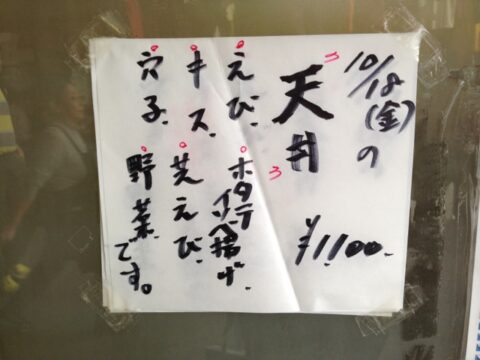 10/18(金)の
天丼
¥1,100.
えび、
キス、
穴子、
ホタテイソベ揚げ、
芝えび、
野菜です。